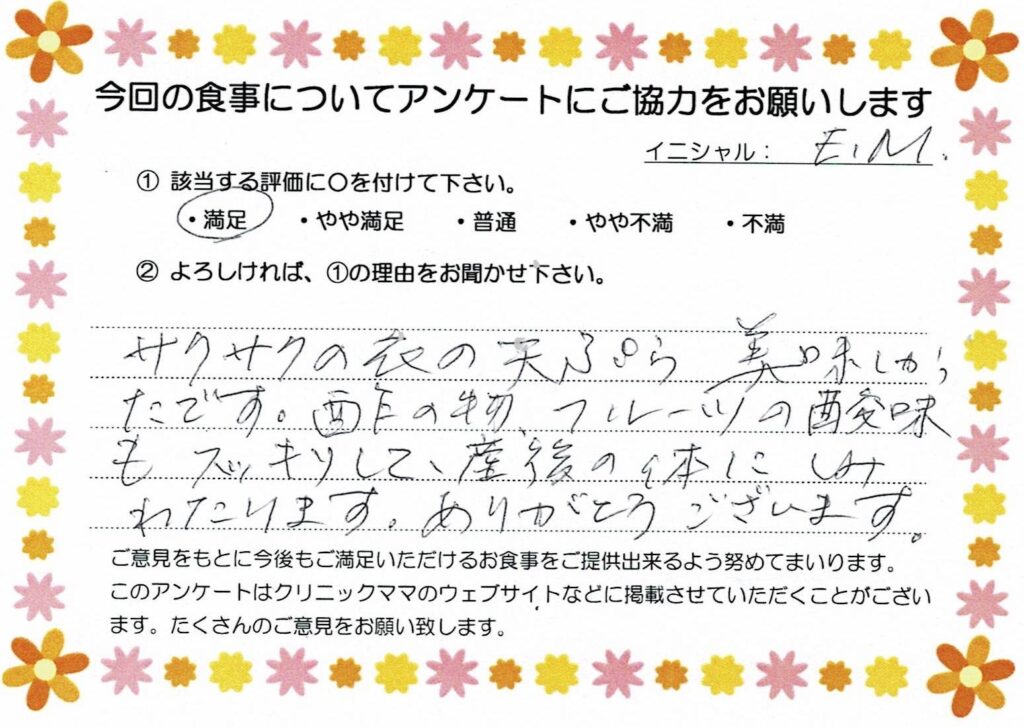 今回の食事についてアンケートにご協力をお願いします
イニシャル： E.M.
① 該当する評価に○を付けて下さい。
・満足 ・やや満足 ・普通 ・やや不満 ・不満
② よろしければ、①の理由をお聞かせ下さい。
サクサクの衣の天ぷら 美味しかっ
たです。酢の物、フルーツの酸味
も スッキリして、産後の体に しみ
わたります。ありがとうございます。
ご意見をもとに今後もご満足いただけるお食事をご提供出来るよう努めてまいります。
このアンケートはクリニックママのウェブサイトなどに掲載させていただくことがござい
ます。たくさんのご意見をお願い致します。